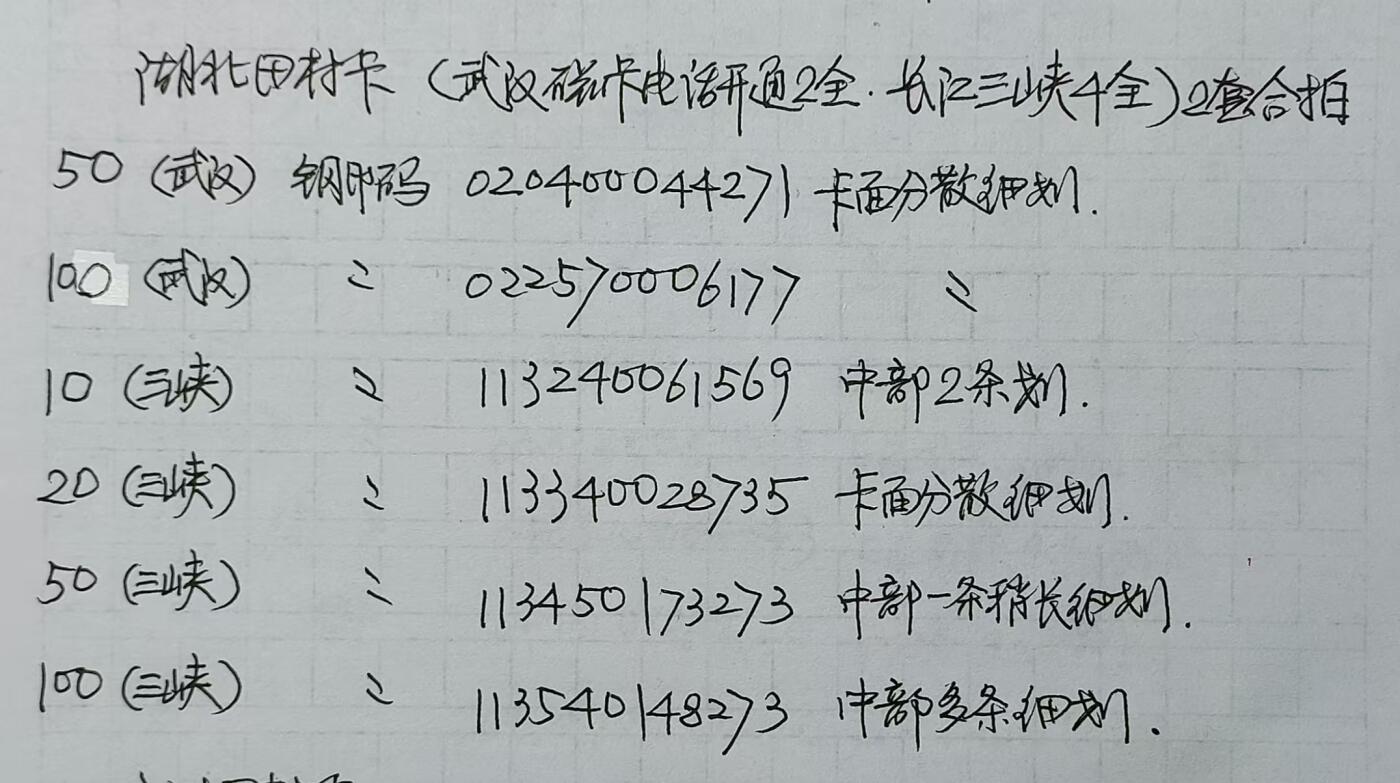 湖北田村卡（武汉磁卡电话开通2全.长江三峡4全）2套合拍
50（武汉）钢印码 020400044271 卡面分散细划.
100（武汉） 〃 022570006177 〃
10（三峡） 〃 113240061569 中部2条划.
20（三峡） 〃 113340028735 卡面分散细划.
50（三峡） 〃 113450173273 中部一条稍长细划.
100（三峡） 〃 113540148273 中部多条细划.